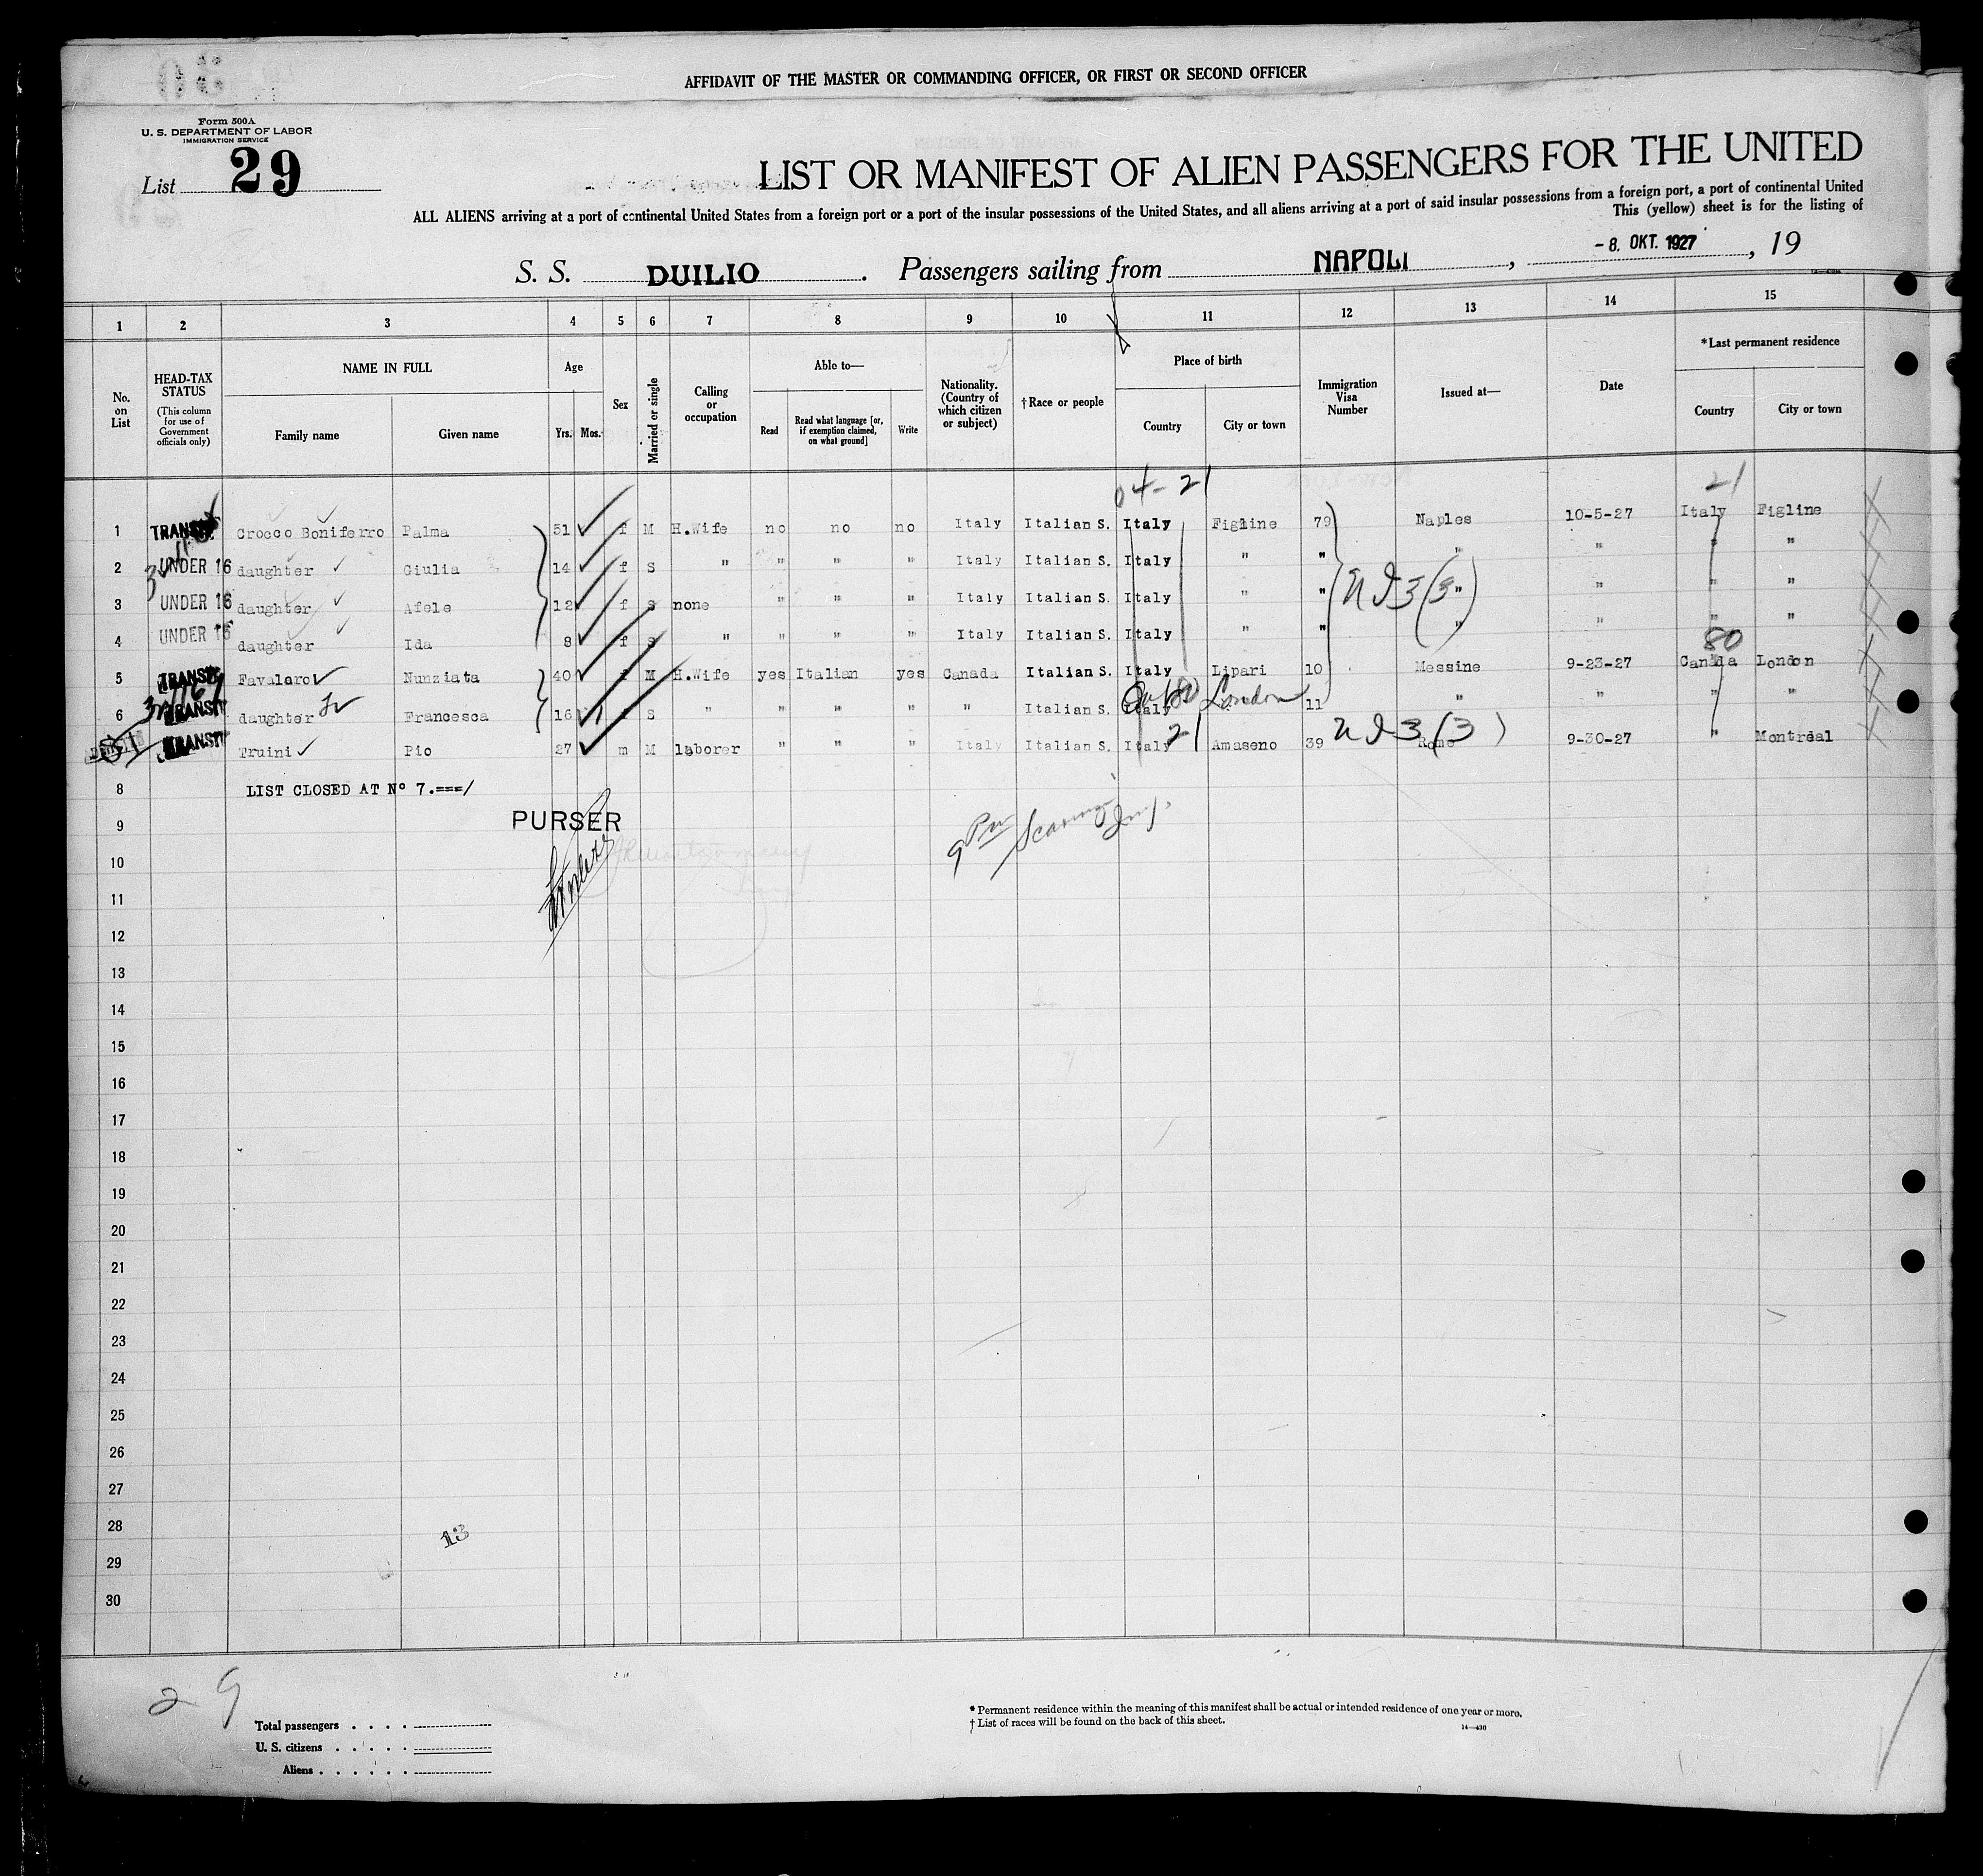 AFFIDAVIT OF THE MASTER OR COMMANDING OFFICER, OR FIRST OR SECOND OFFICER
Form 500A
U. S. DEPARTMENT OF LABOR
IMMIGRATION SERVICE
List 29
LIST OR MANIFEST OF ALIEN PASSENGERS FOR THE UNITED
ALL ALIENS arriving at a port of continental United States from a foreign port or a port of the insular possessions of the United States, and all aliens arriving at a port of said insular possessions from a foreign port, a port of continental United
This (yellow) sheet is for the listing of
S. S. DUILIO . Passengers sailing from NAPOLI , - 8. OKT. 1927 , 19
1 2 3 4 5 6 7 8 9 10 11 12 13 14 15
No. on List
HEAD-TAX STATUS
(This column for use of Government officials only)
NAME IN FULL
Family name Given name
Age
Yrs. Mos.
Sex
Married or single
Calling or occupation
Able to—
Read
Read what language [or, if exemption claimed, on what ground]
Write
Nationality. (Country of which citizen or subject)
†Race or people
Place of birth
Country City or town
Immigration Visa Number
Issued at—
Date
*Last permanent residence
Country City or town
04-21 21
1 TRANSIT Crocco Boniferro Palma 51 f M H.Wife no no no Italy Italian S. Italy Figline 79 Naples 10-5-27 Italy Figline
2 UNDER 16 daughter Giulia 14 f S " " " " Italy Italian S. Italy " " " " " "
3 UNDER 16 daughter Afele 12 f S none " " " Italy Italian S. Italy " " " " " "
NI3(3)
4 UNDER 16 daughter Ida 8 f S " " " " Italy Italian S. Italy " " " " " "
80
5 TRANSIT Favaloro Nunziata 40 f M H.Wife yes Italian yes Canada Italian S. Italy Lipari 10 Messine 9-23-27 Canada London
6 TRANSIT daughter Francesca 16 f S " " " " " Italian S. Italy London 11 " " " "
21 NI3(3)
7 TRANSIT Truini Pio 27 m M laborer " " " Italy Italian S. Italy Amaseno 39 Rome 9-30-27 " Montréal
8 LIST CLOSED AT N° 7.===/
9 PURSER
10
11
12
13
14
15
16
17
18
19
20
21
22
23
24
25
26
27
28
13
29
30
29
Total passengers . . . .
U. S. citizens . . . . .
Aliens . . . . . .
* Permanent residence within the meaning of this manifest shall be actual or intended residence of one year or more.
† List of races will be found on the back of this sheet.
14—430